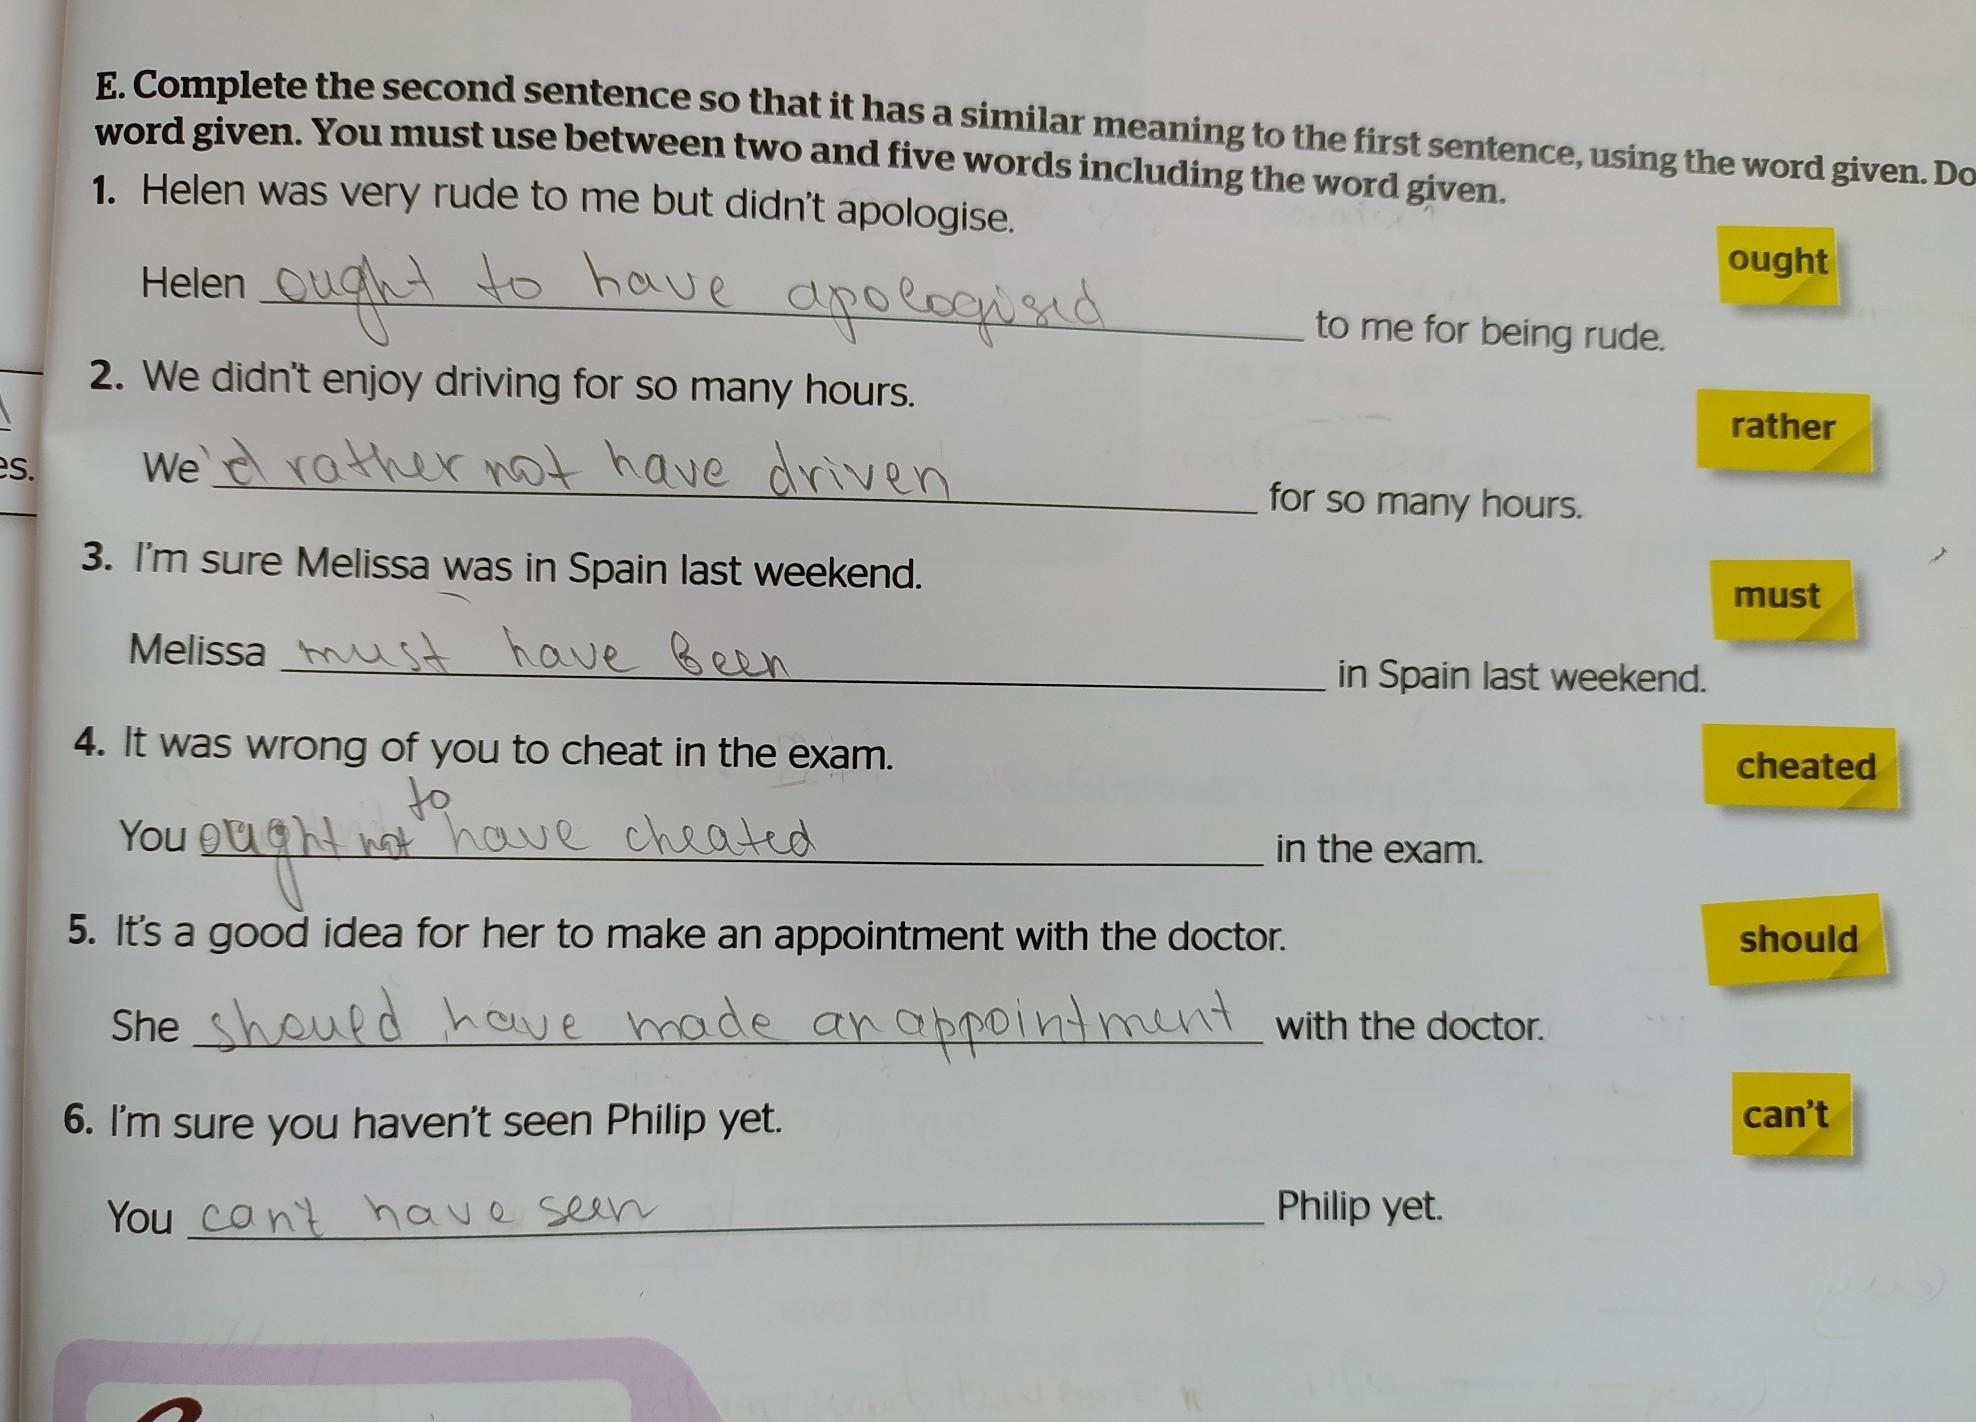 E. Complete the second sentence so that it has a similar meaning to the first sentence, using the word given. Do
word given. You must use between two and five words including the word given.
1. Helen was very rude to me but didn't apologise.
ought
Helen ought to have apologised to me for being rude.
2. We didn't enjoy driving for so many hours.
rather
We'd rather not have driven for so many hours.
es.
3. I'm sure Melissa was in Spain last weekend.
must
Melissa must have been in Spain last weekend.
4. It was wrong of you to cheat in the exam.
cheated
to
You ought not have cheated in the exam.
5. It's a good idea for her to make an appointment with the doctor.
should
She should have made an appointment with the doctor.
6. I'm sure you haven't seen Philip yet.
can't
You can't have seen Philip yet.